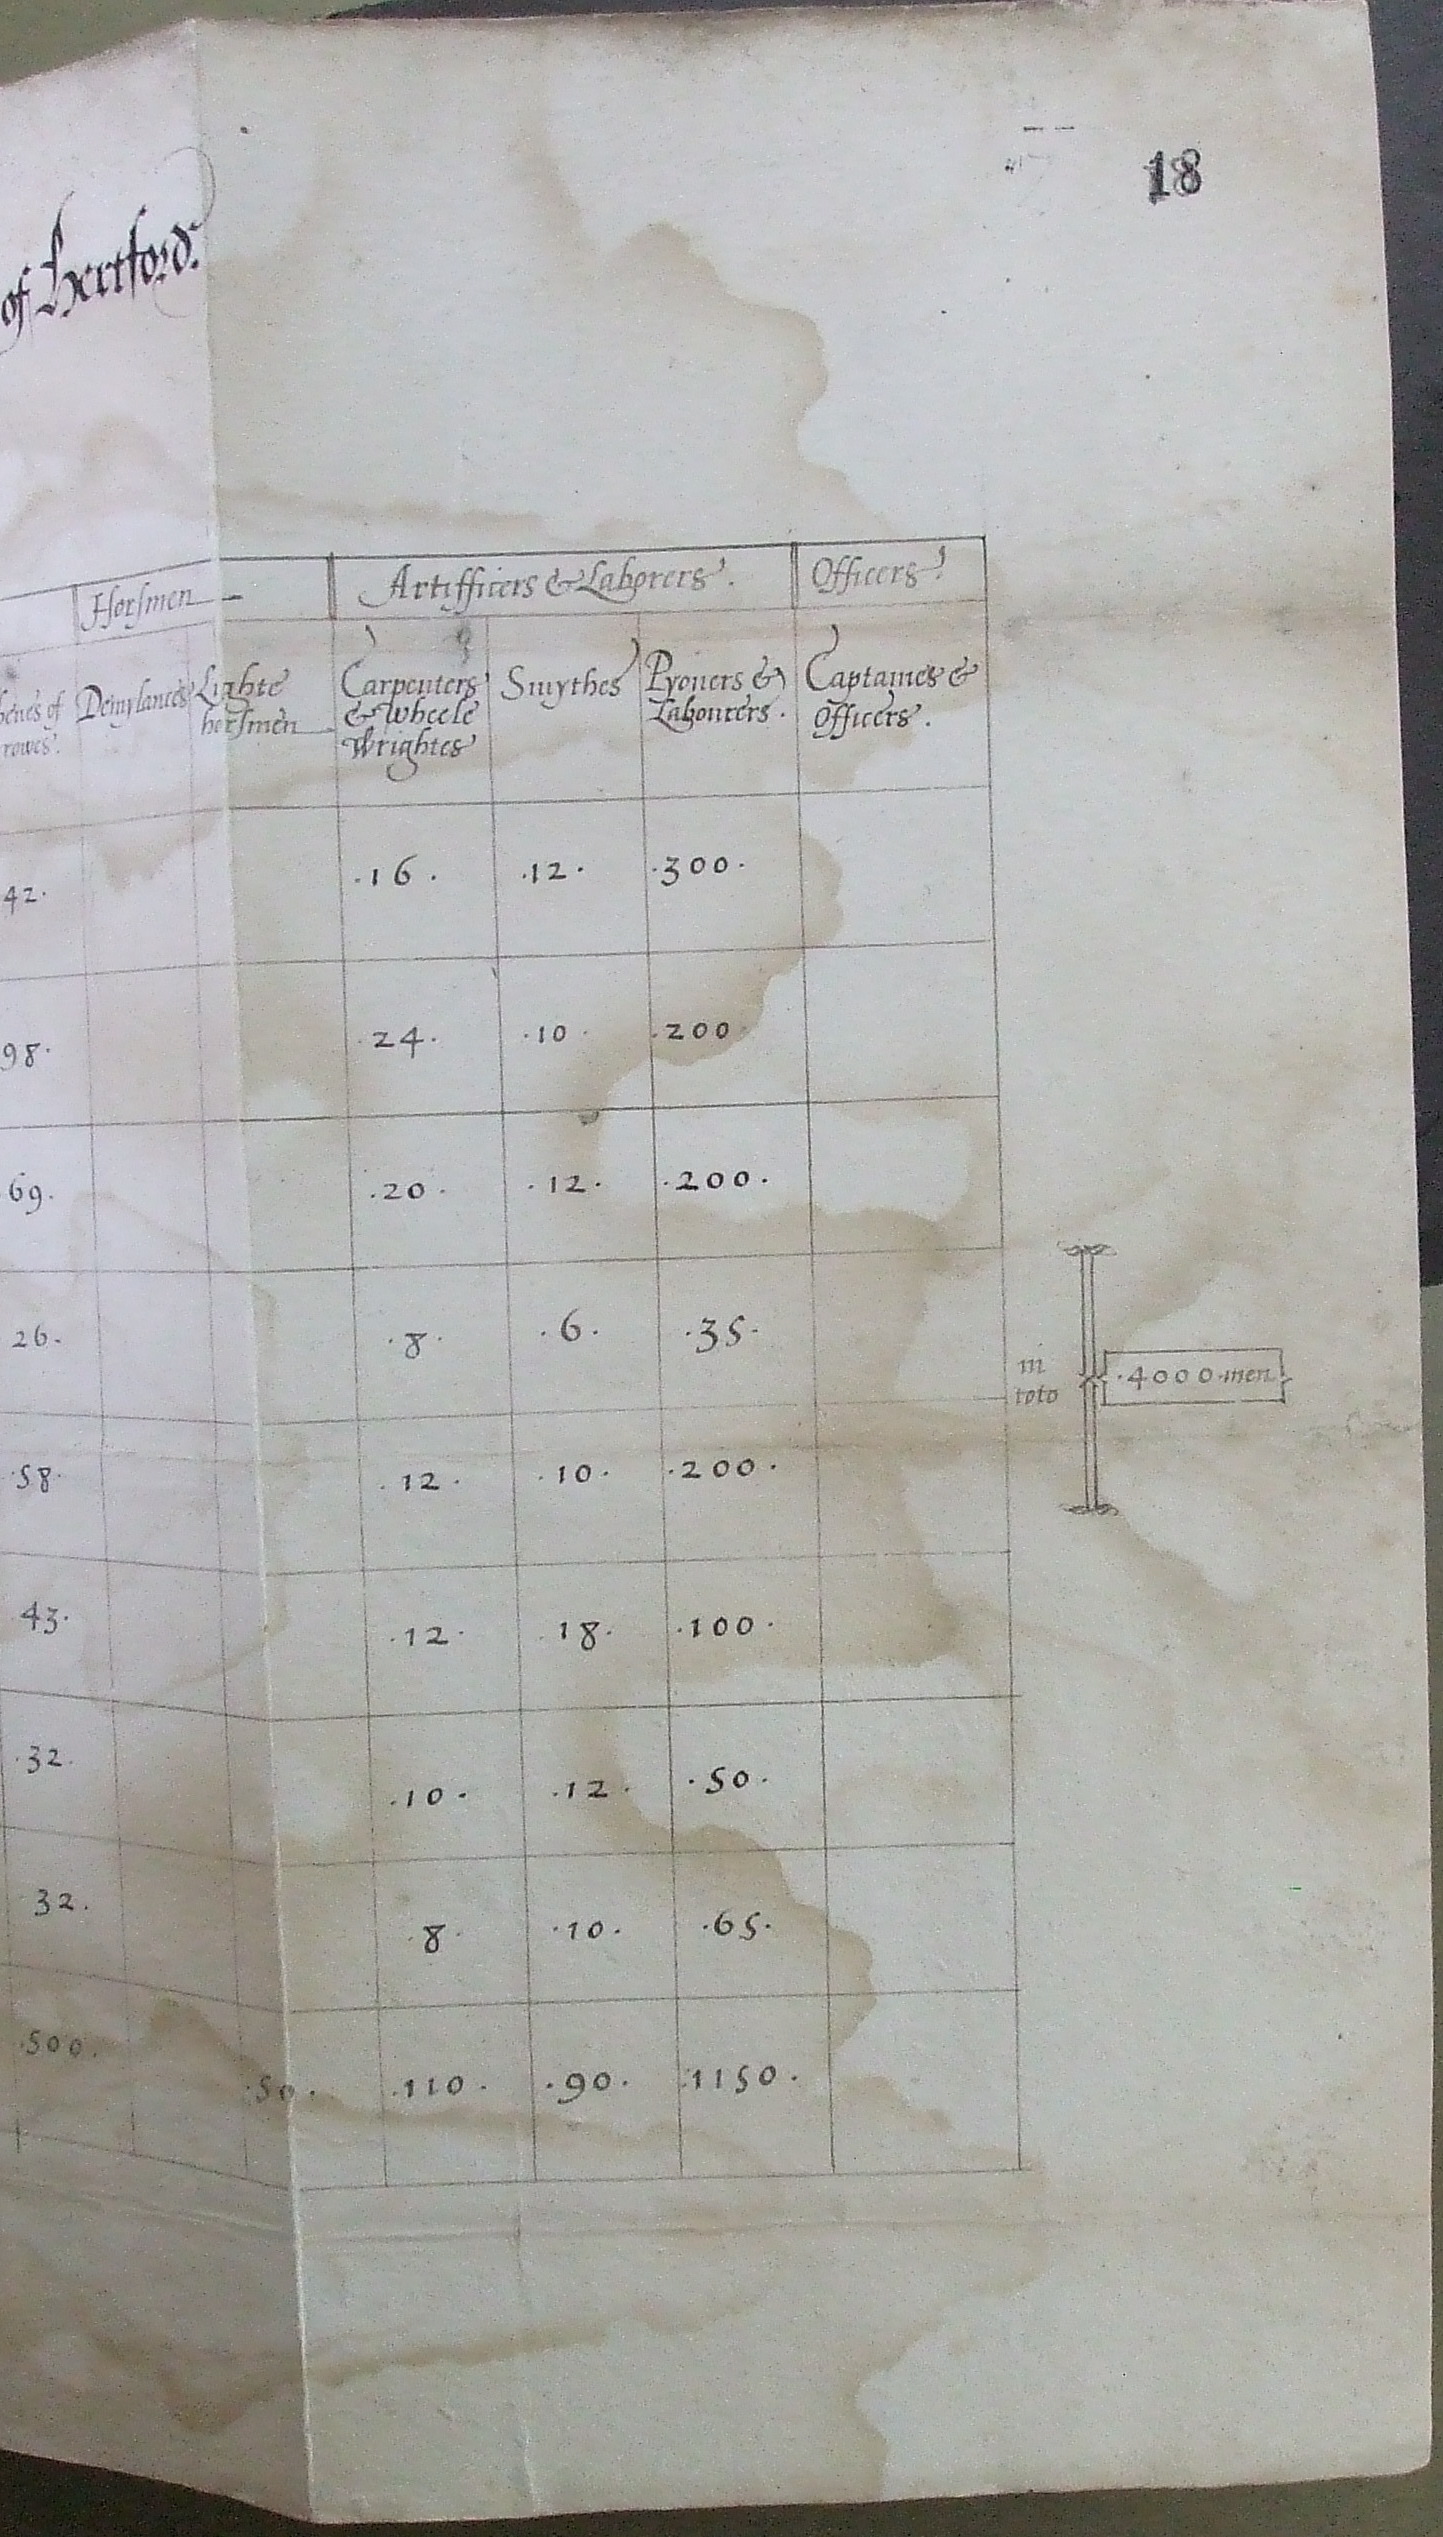 18
of Hertford.
Horsmen Artifficers & Laborers. Officers.
henes of Demylances Lighte Carpenters Smythes Pyoners & Captaines &
rowes. horsmen & Wheele Labourers. Officers.
Wrightes
42. .16. .12. .300.
98. 24. .10. .200.
69. .20. .12. .200.
26. .8. .6. .35.
in toto .4000.men
.58. .12. .10. .200.
43. .12. 18. .100.
.32. .10. .12. .50.
32. .8. .10. .65.
.500. .50. .110. .90. .1150.